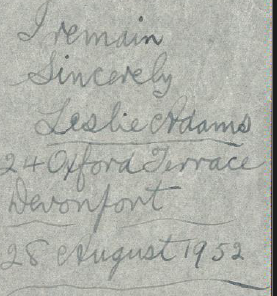 I remain
Sincerely
Leslie Adams
24 Oxford Terrace
Devonport
28 August 1952